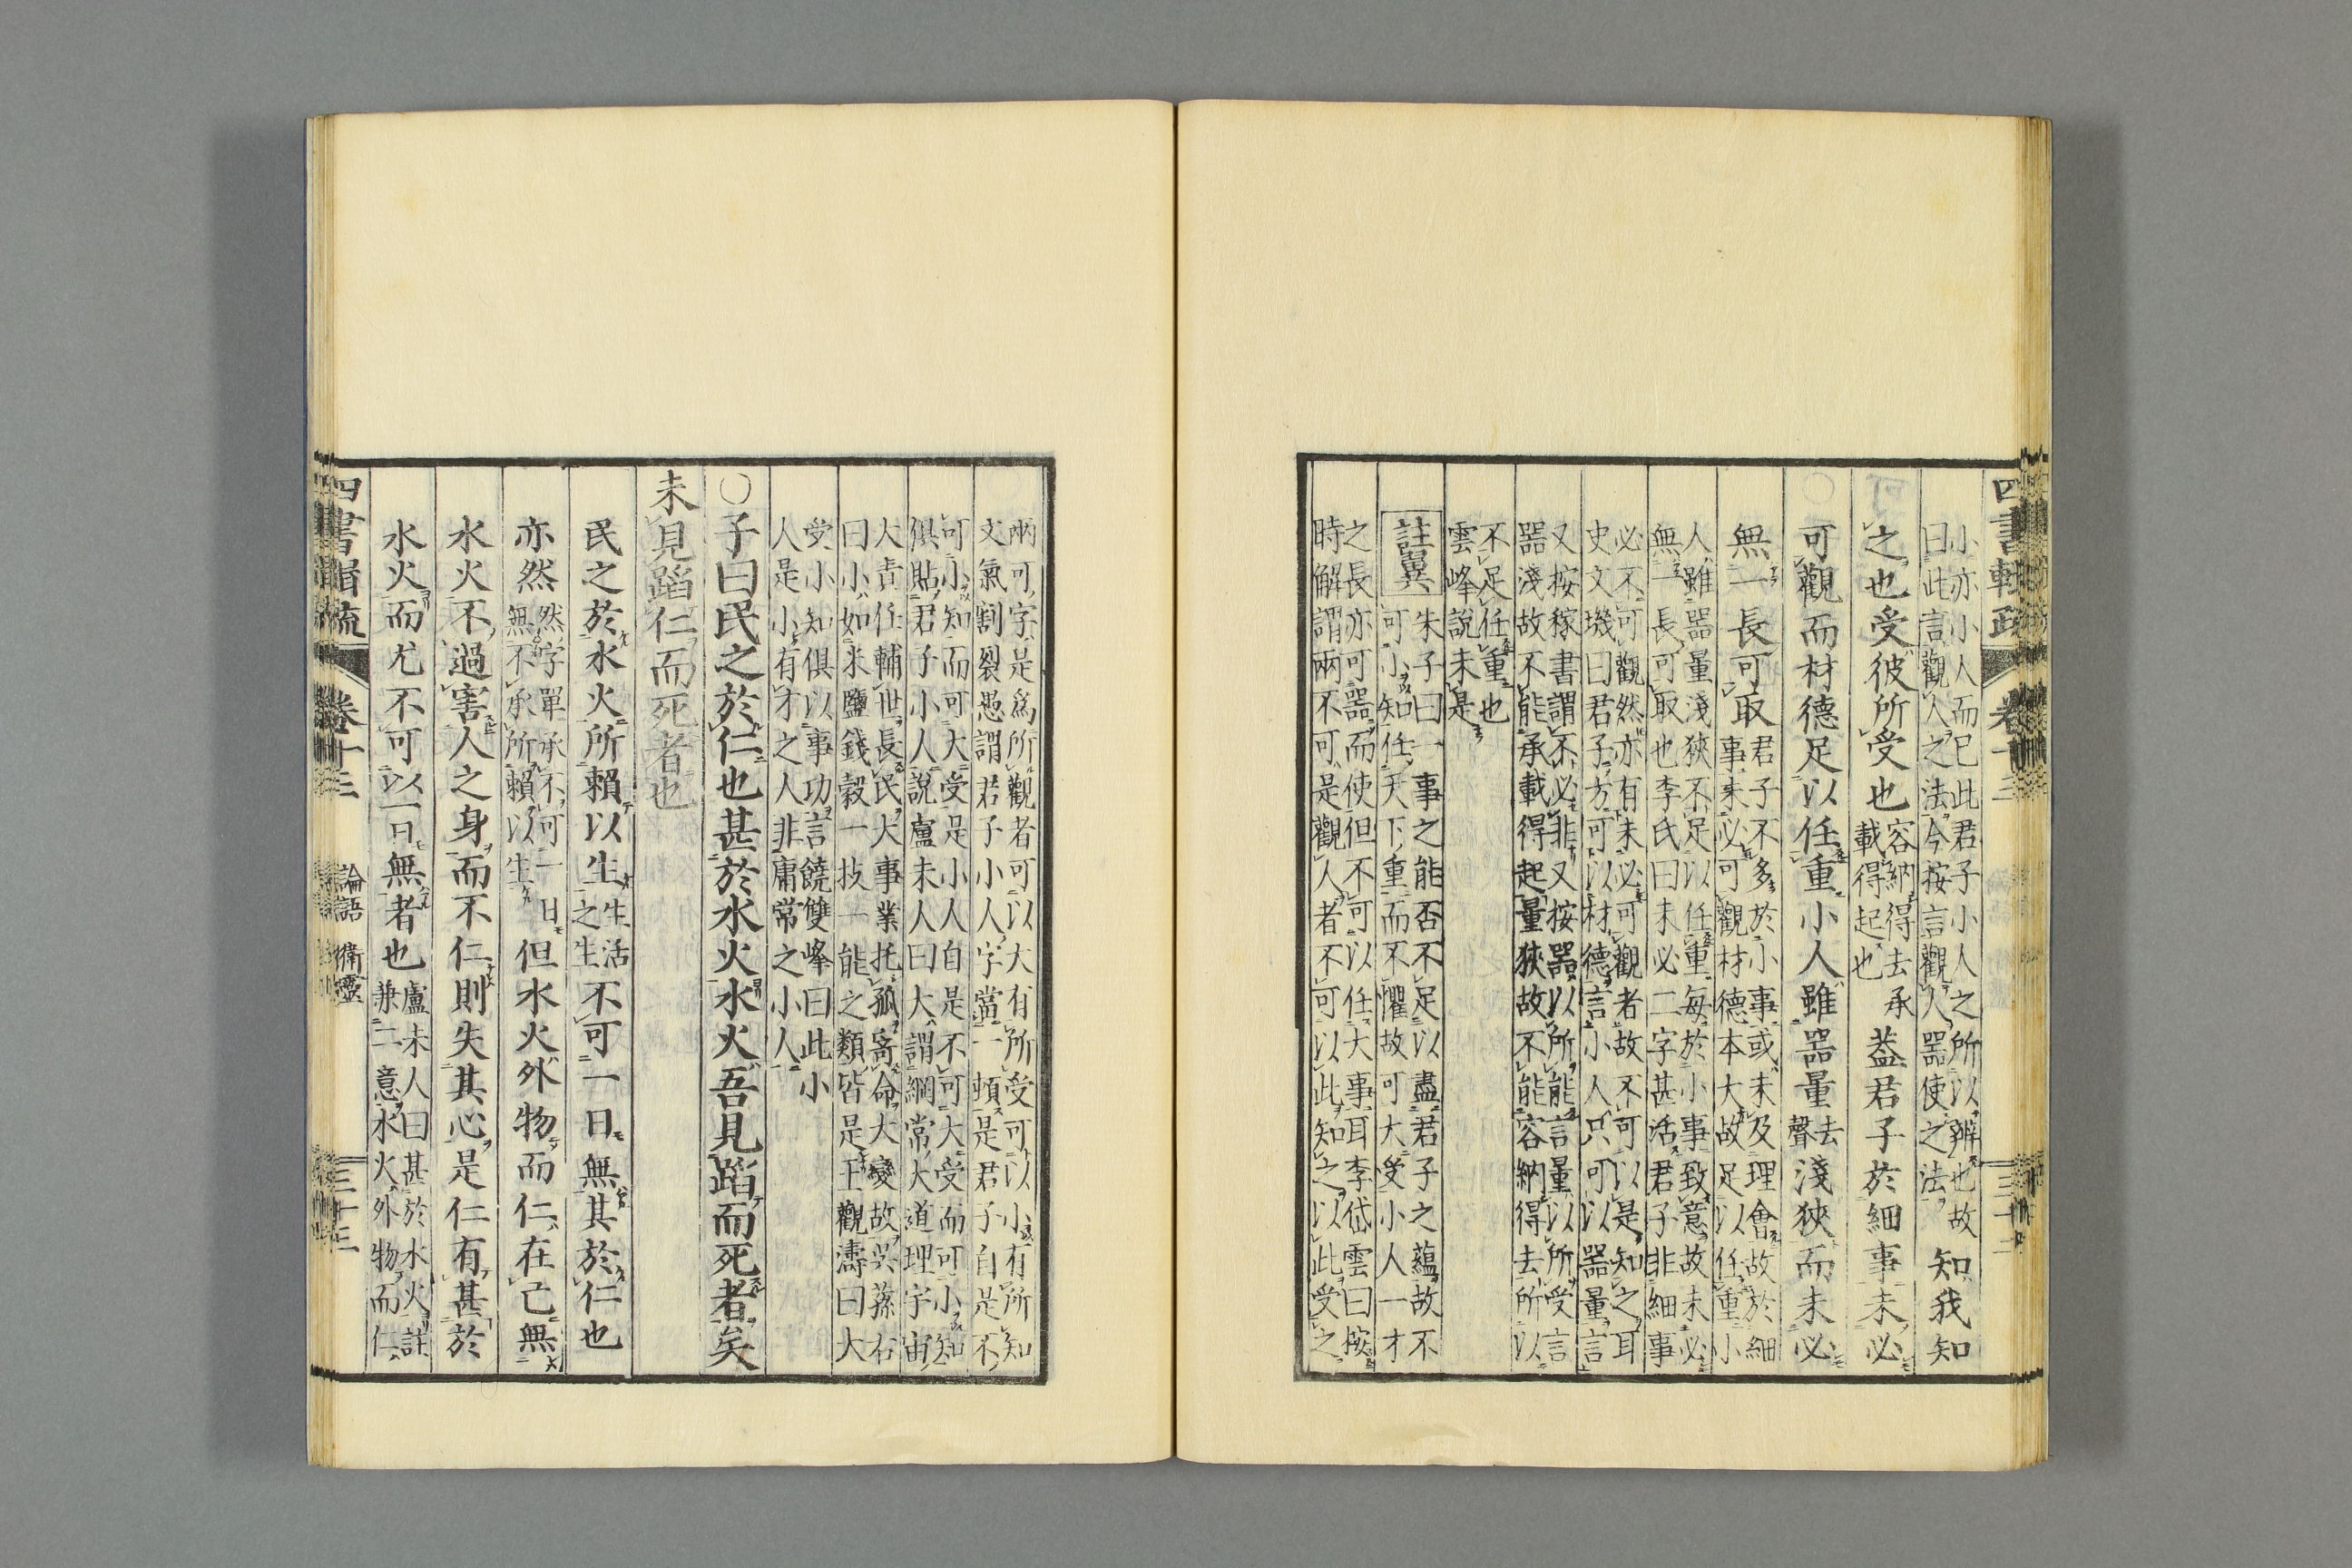 小亦小人而已此君子小人之所以辨也故
曰此言觀人之法今按言觀人器使之法
知我知
之也受彼所受也
容納得去承
載得起也
蓋君子於細事未必
可觀而材德足以任重小人雖器量
去
聲
淺狹而未必
無一長可取
君子不多於小事或未及理會故於細
事未必可觀材德本大故足以任重小
人雖器量淺狹不足以任重每於小事致意故未必
無一長可取也李氏曰未必二字甚活君子非細事
必不可觀然亦有未必可觀者故不可以是知之耳
史文璣曰君子方可以材德言小人只可以器量言
又按稼書謂不必非又按器以所能言量以所受言
器淺故不能承載得起量狹故不能容納得去所以
不足任重也
雲峰說未是
註翼
朱子曰一事之能否不足以盡君子之蘊故不
可小知任天下重而不懼故可大受小人一才
之長亦可器而使但不可以任大事耳李岱雲曰按
時解謂兩不可是觀人者不可以此知之以此受之
兩可字是爲所觀者可以大有所受可以小有所知
文氣割裂愚謂君子小人字當一頓是君子自是不
可小知而可大受是小人自是不可大受而可小知
俱貼君子小人說盧未人曰大謂綱常大道理宇宙
大責任輔世長民大事業托孤寄命大變故吳蓀右
曰小如米鹽錢穀一技一能之類皆是王觀濤曰大
受小知俱以事功言饒雙峰曰此小
人是小有才之人非庸常之小人
○子曰民之於仁也甚於水火水火吾見蹈而死者矣
未見蹈仁而死者也
民之於水火所賴以生
生活
之生
不可一日無其於仁也
亦然
然字單承不可一日
無不承所賴以生
但水火外物而仁在己無
水火不過害人之身而不仁則失其心是仁有甚於
水火而尤不可以一日無者也
盧未人曰甚於水火註
兼二意水火外物而仁
卷十三
論語
衛靈
三十三